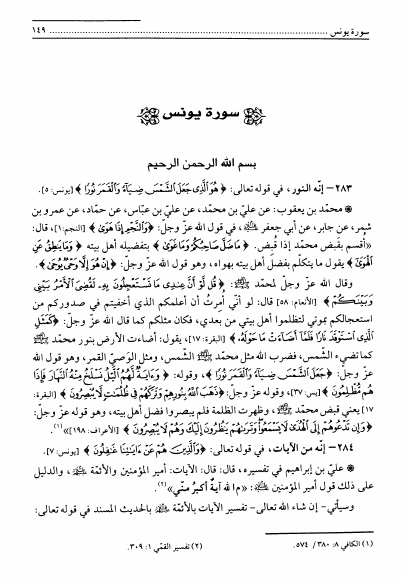 سورة يونس ........................................................ ١٤٩
سورة يونس
بسم الله الرحمن الرحيم
٢٨٣- إنّه النور، في قوله تعالى: ﴿هُوَ الَّذِي جَعَلَ الشَّمْسَ ضِيَاءً وَالْقَمَرَ نُورًا﴾ [يونس: ٥].
● محمّد بن يعقوب: عن عليّ بن محمّد، عن عليّ بن عبّاس، عن حمّاد، عن عمرو بن
شمر، عن جابر، عن أبي جعفر ﷺ، في قول الله عزّ وجلّ: ﴿وَالنَّجْمِ إِذَا هَوَىٰ﴾ [النجم: ١]، قال:
«أقسم بقبض محمّد إذا قُبض. ﴿مَا ضَلَّ صَاحِبُكُمْ وَمَا غَوَىٰ﴾ بتفضيله أهل بيته ﴿وَمَا يَنطِقُ عَنِ
الْهَوَىٰ﴾ يقول ما يتكلّم بفضل أهل بيته بهواه، وهو قول الله عزّ وجلّ: ﴿إِنْ هُوَ إِلَّا وَحْيٌ يُوحَىٰ﴾.
وقال الله عزّ وجلّ لمحمّد ﷺ: ﴿قُل لَّوْ أَنَّ عِندِي مَا تَسْتَعْجِلُونَ بِهِ لَقُضِيَ الْأَمْرُ بَيْنِي
وَبَيْنَكُمْ﴾ [الأنعام: ٥٨] قال: لو أنّي أُمرتُ أن أعلمكم الذي أخفيتم في صدوركم من
استعجالكم بموتي لتظلموا أهل بيتي من بعدي، فكان مثلكم كما قال الله عزّ وجلّ: ﴿كَمَثَلِ
الَّذِي اسْتَوْقَدَ نَارًا فَلَمَّا أَضَاءَتْ مَا حَوْلَهُ﴾ [البقرة: ١٧]، يقول: أضاءت الأرض بنور محمّد
كما تضيء الشّمس، فضرب الله مثل محمّد ﷺ الشّمس، ومثل الوصيّ القمر، وهو قول الله
عزّ وجلّ: ﴿جَعَلَ الشَّمْسَ ضِيَاءً وَالْقَمَرَ نُورًا﴾، وقوله: ﴿وَآيَةٌ لَّهُمُ اللَّيْلُ نَسْلَخُ مِنْهُ النَّهَارَ فَإِذَا
هُم مُّظْلِمُونَ﴾ [يس: ٣٧]، وقوله عزّ وجلّ: ﴿ذَهَبَ اللَّهُ بِنُورِهِمْ وَتَرَكَهُمْ فِي ظُلُمَاتٍ لَّا يُبْصِرُونَ﴾ [البقرة:
١٧] يعني قبض محمّد ﷺ، وظهرت الظلمة فلم يبصروا فضل أهل بيته، وهو قوله عزّ وجلّ:
﴿وَإِن تَدْعُوهُمْ إِلَى الْهُدَىٰ لَا يَسْمَعُوا وَتَرَاهُمْ يَنظُرُونَ إِلَيْكَ وَهُمْ لَا يُبْصِرُونَ﴾ [الأعراف: ١٩٨]»(١).
٢٨٤- إنّه من الآيات، في قوله تعالى: ﴿وَالَّذِينَ هُمْ عَنْ آيَاتِنَا غَافِلُونَ﴾ [يونس: ٧].
● عليّ بن إبراهيم في تفسيره، قال: قال: الآيات: أمير المؤمنين والأئمّة ﷺ، والدليل
على ذلك قول أمير المؤمنين ﷺ: «ما لله آيةٌ أكبرُ منّي»(٢).
وسيأتي- إن شاء الله تعالى- تفسير الآيات بالأئمّة ﷺ بالحديث المسند في قوله تعالى:
(١) الكافي ٨: ٣٨٠/ ٥٧٤. (٢) تفسير القمّي ١: ٣٠٩.